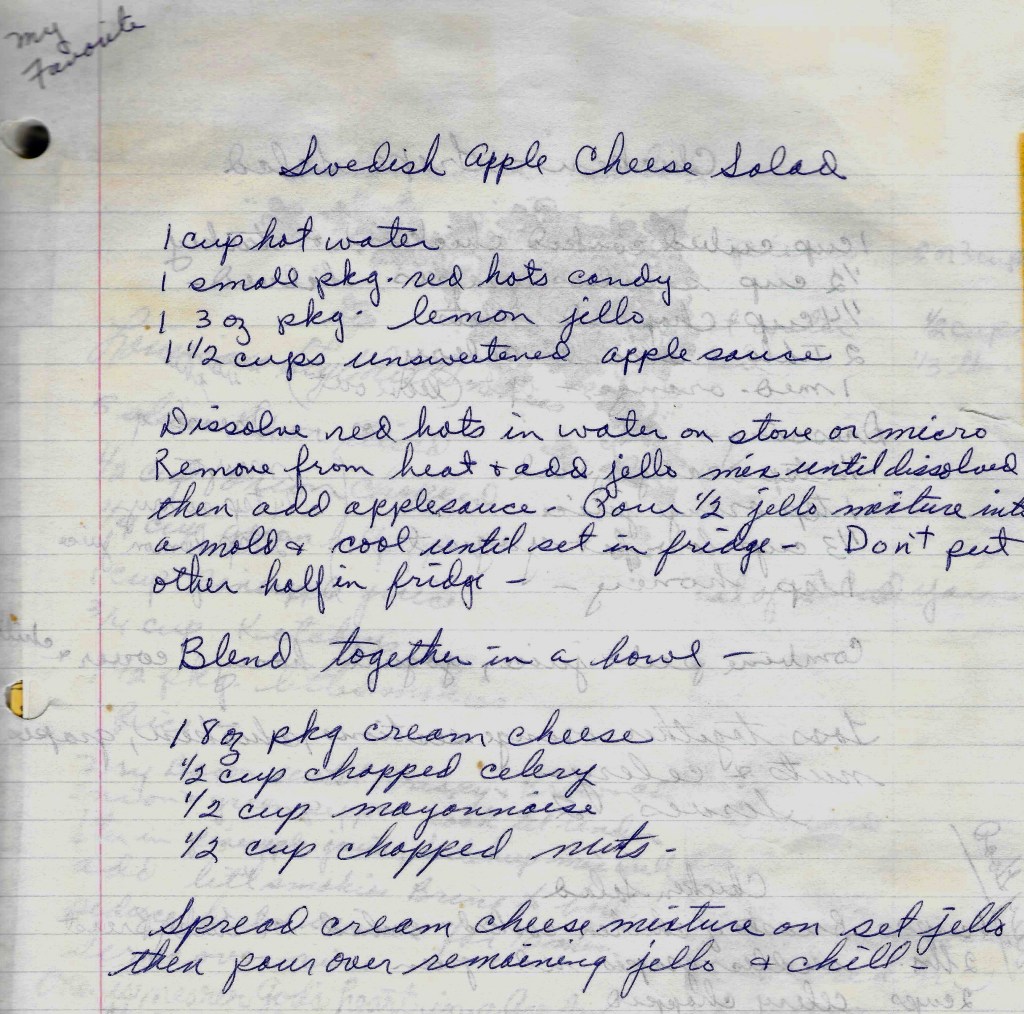 My
Favorite
Swedish Apple Cheese Salad
1 cup hot water
1 small pkg. red hots candy
1 3 oz pkg. lemon jello
1 1/2 cups unsweetened applesauce
Dissolve red hots in water on stove or micro
Remove from heat + add jello mix until dissolved
then add applesauce - Pour 1/2 jello mixture into
a mold & cool until set in fridge - Don't put
other half in fridge -
Blend together in a bowl -
1 8 oz pkg cream cheese
1/2 cup chopped celery
1/2 cup mayonnaise
1/2 cup chopped nuts -
Spread cream cheese mixture on set jello
then pour over remaining jello & chill -